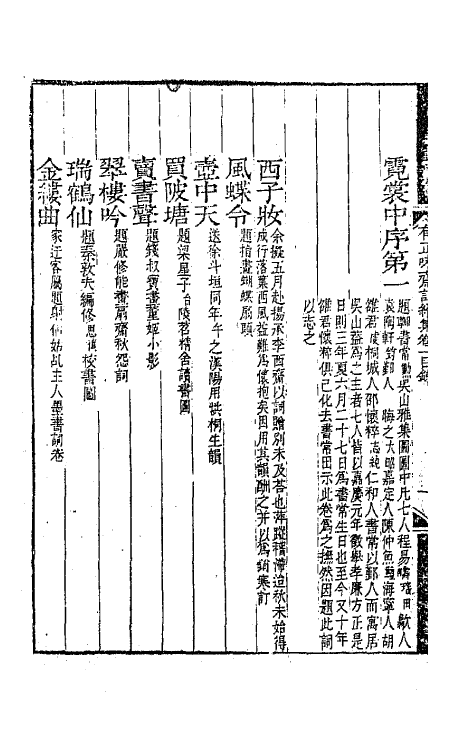 有正味齋詞續集卷一目錄
霓裳中序第一
題鄭書常勳吳山雅集圖圖中凡七人程易疇瑤田歙人
袁陶軒鈞鄞人 晦之大昭嘉定人陳仲魚鱣海寧人胡
雒君虔桐城人邵懷粹志純仁和人書常以鄞人而寓居
吳山蓋為之主者七人皆以嘉慶元年徵舉孝廉方正是
日則三年夏六月二十七日為書常生日也至今又十年
雒君懷粹俱已化去書常田示此卷為之撫然因題此詞
以志之
西子妝
余擬五月赴揚承李西齋以詞贈別未及荅也萍蹤稽滯迨秋末始得
成行落葉西風益難為懷抱矣因用其韻酬之并以為銷寒訂
風蝶令
題指畫蝴蝶扇頭
壺中天
送徐斗垣同年午之漢陽用洪桐生韻
買陂塘
題梁星子 茗精舍讀書圖
賣書聲
題錢叔 畫董姬小影
翠樓吟
題嚴修能書扇齋秋怨詞
瑞鶴仙
題秦敦夫編修恩復校書圖
金縷曲
家迂客屬題射 仙姑 主人墨書詞卷